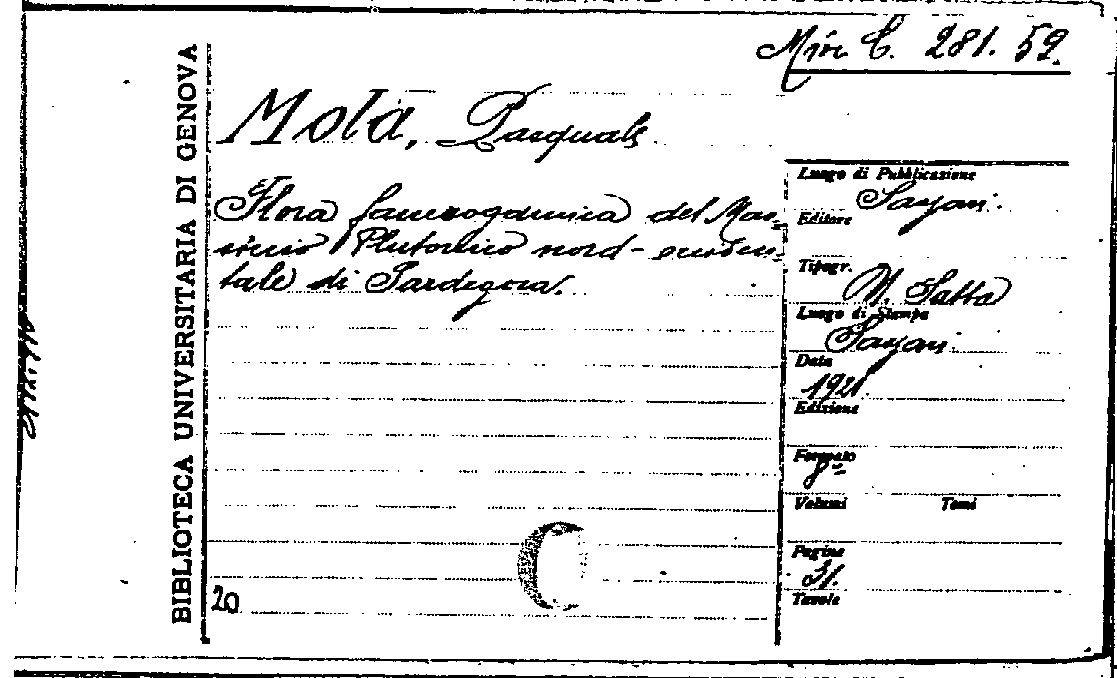 Misc C. 281. 59.
BIBLIOTECA UNIVERSITARIA DI GENOVA
Mola, Pasquale
Flora fanerogamica del Mas-
siccio Plutonico nord-orien-
tale di Sardegna.
20
C
Luogo di Pubblicazione
Sassari.
Editore
Tipogr.
U. Satta
Luogo di Stampa
Sassari.
Data
1921.
Edizione
Formato
8º
Volumi Tomi
Pagine
31.
Tavole